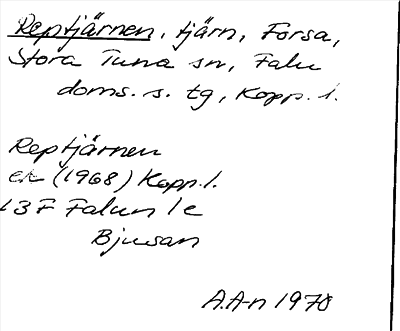 Reptjärnen, tjärn, Forsa,
Stora Tuna sn, Falu
doms. s. tg, Kopp. l.
Reptjärnen
ek (1968) Kopp. l.
13F Falun 1c
Bjusan
A.A-n 1970